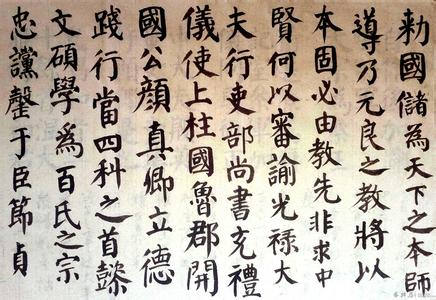 勑國儲為天下之本師
導乃元良之教將以
本固必由教先非求中
賢何以審諭光禄大
夫行吏部尚書充禮
儀使上柱國魯郡開
國公顔真卿立德
踐行當四科之首懿
文碩學爲百氏之宗
忠讜罄于臣節貞